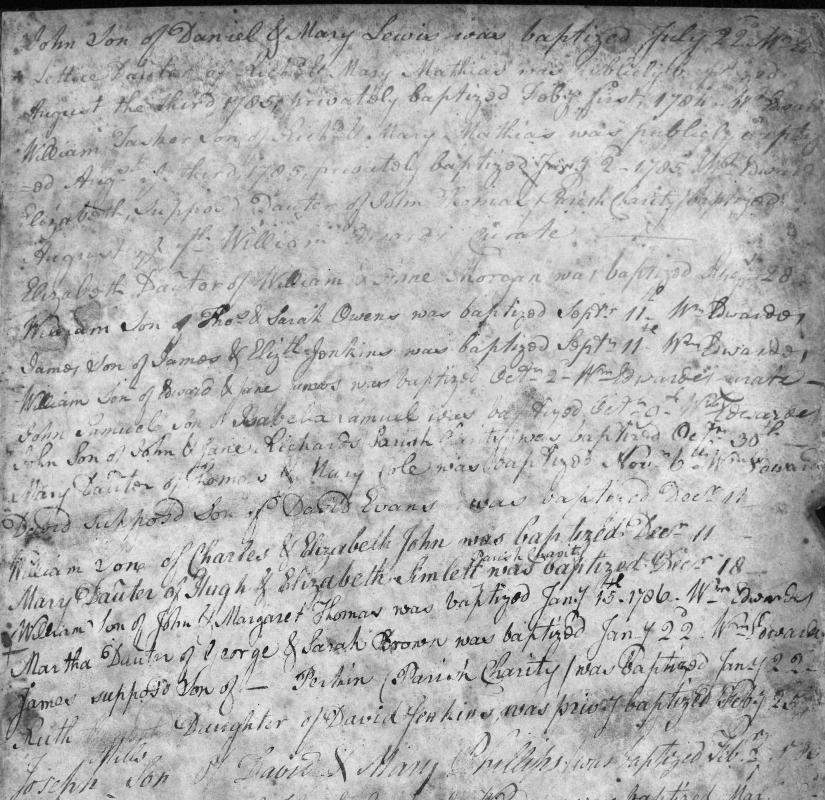 John Son of Daniel & Mary Lewis was baptized July 22d Wm
Lettice Dauter of Richd & Mary Mathias was publicly
August the third 1785, privately baptized Feby first, 1784. Wm
William Tasker Son of Richd & Mary Mathias was publicly baptiz
=ed Augst ye third 1785, privately baptized Jany 2 - 1785 Wm Edward
Elizabeth, suppos'd Dauter of John Thomas (Parish Charity) baptized
August ye William Edwardes Curate
Elizabeth Dauter of William & Anne Morgan was baptized 28
William Son of Thos & Sarah Owens was baptized Septr 11th Wm Edwardes
James Son of James & Elizth Jenkins was baptized Septr 11th Wm Edwardes
William Son of Edward & Jane was baptized Octr 2 - Wm Edwardes Curate -
John Samuel Son of Issabella Samuel was baptized Octr 9th Wm Edwardes
John Son of John & Jane Richards Parish Charity was baptized Octr 30th
Mary Dauter of Thomas & Mary Cole was baptized Novr 6th Wm Edwardes
David suppos'd Son of David Evans was baptized Decr 11
William Son of Charles & Elizabeth John was baptized Decr 11
Parish Charity
Mary Dauter of Hugh & Elizabeth Simlett was baptized Decr 18
William Son of John & Margaret Thomas was baptized Jany 15th 1786. Wm Edwardes
Martha Dautr of George & Sarah Brown was baptized Jany 22 Wm Edwardes
James suppos'd Son of - Perkin (Parish Charity) was baptized Jany 22 -
Ruth Daughter of David Jenkins, was privy baptized Feby 25
Mills
Joseph Son of David & Mary Phillips was baptized Feb.
baptized Mar